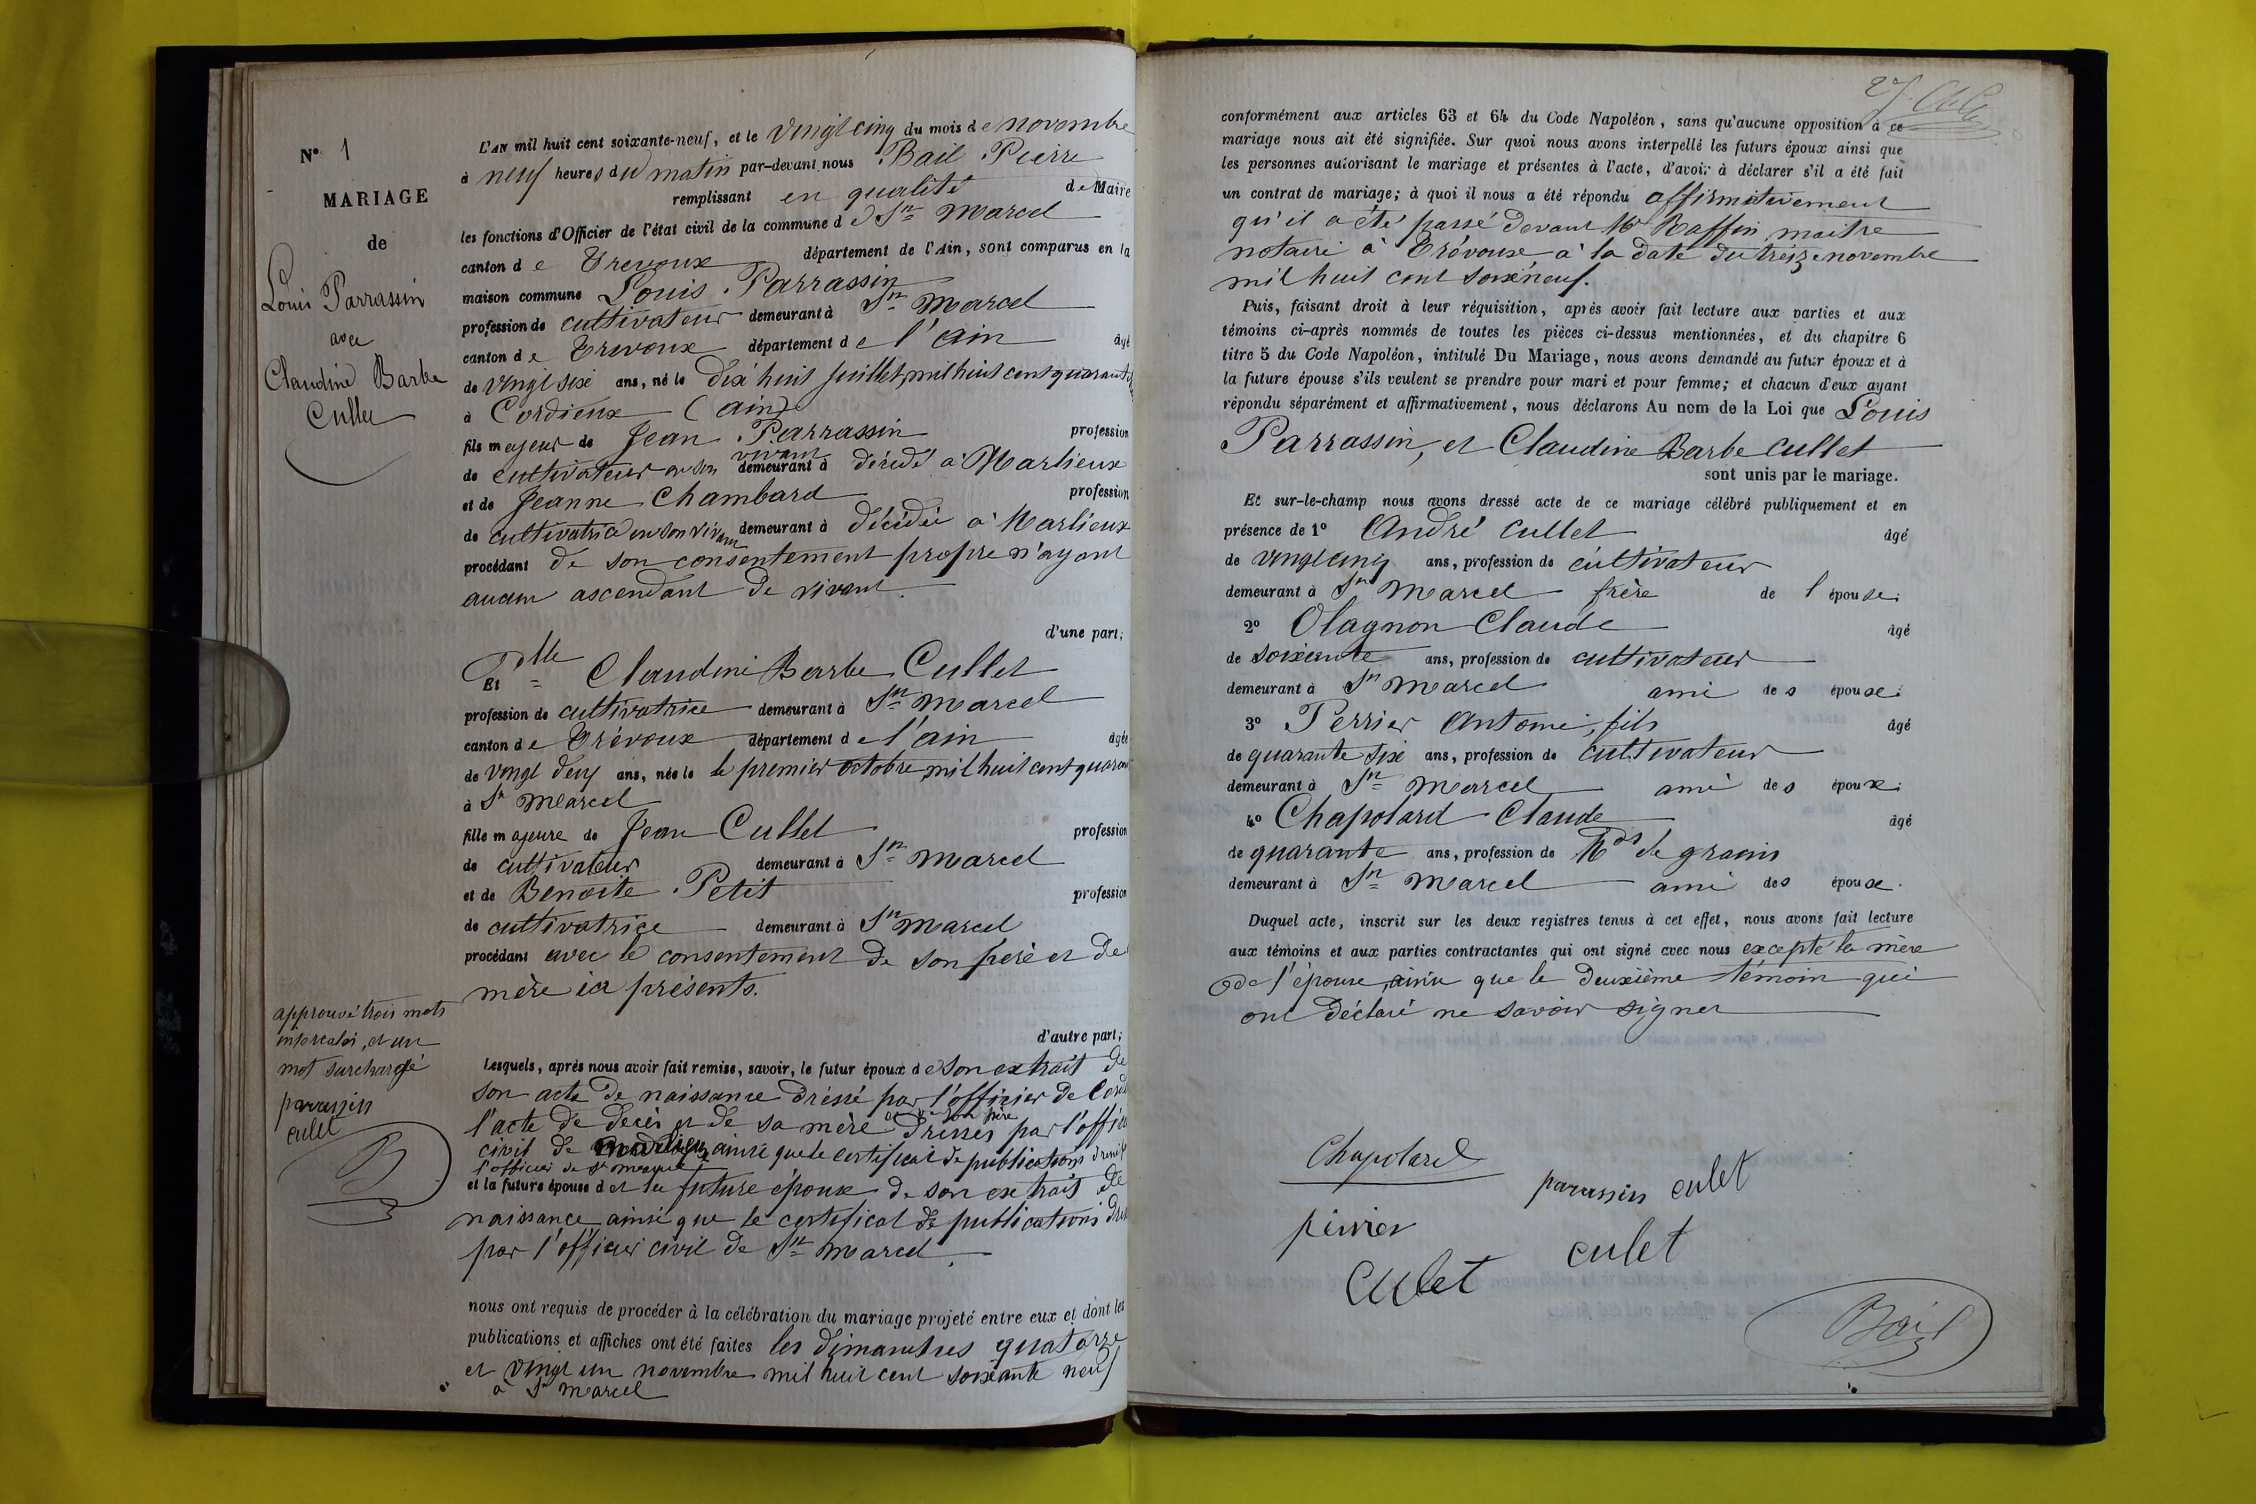 N° 1
MARIAGE
de
Louis Parrassin
avec
Claudine Barbe
Cullet
L'AN mil huit cent soixante-neuf, et le vingt cinq du mois de novembre
à neuf heures du matin par-devant nous Bail Pierre
remplissant en qualité de Maire
les fonctions d'Officier de l'état civil de la commune de St Marcel
canton de Trevoux département de l'Ain, sont comparus en la
maison commune Louis Parrassin
profession de cultivateur demeurant à St Marcel
canton de Trevoux département de l'ain âgé
de vingt six ans, né le dix huit juillet mil huit cent quarante
à Cordieux (ain)
fils majeur de Jean Parrassin profession
de cultivateur en son vivant demeurant à décédé à Marlieux
et de Jeanne Chambard profession
de cultivatrice en son vivant demeurant à décédée à Marlieux
procédant de son consentement propre n'ayant
aucun ascendant de vivant.
d'une part;
Et Dlle Claudine Barbe Cullet
profession de cultivatrice demeurant à St Marcel
canton de Trévoux département de l'ain âgée
de vingt deux ans, née le le premier octobre mil huit cent quaran
à St Marcel
fille majeure de Jean Cullet profession
de cultivateur demeurant à St Marcel
et de Benoite Petit profession
de cultivatrice demeurant à St Marcel
procédant avec le consentement de son père et de
mère ici présents.
d'autre part;
approuvé trois mots
intercalés, et un
mot surchargé
parrassin
culet
B
Lesquels, après nous avoir fait remise, savoir, le futur époux de son extrait de
son acte de naissance dressé par l'officier de Cord
l'acte de décès et de sa mère et de son père dressés par l'offici
civil de Marlieux ainsi que le certificat de publications dressé
l'officier de St Marcel
et la future épouse d et la future épouse de son extrait de
naissance ainsi que le certificat de publications dres
par l'officier civil de St Marcel.
nous ont requis de procéder à la célébration du mariage projeté entre eux et dont les
publications et affiches ont été faites les dimanches quatorze
et vingt un novembre mil huit cent soixante neuf
à St Marcel
conformément aux articles 63 et 64 du Code Napoléon, sans qu'aucune opposition à ce
mariage nous ait été signifiée. Sur quoi nous avons interpellé les futurs époux ainsi que
les personnes autorisant le mariage et présentes à l'acte, d'avoir à déclarer s'il a été fait
un contrat de mariage; à quoi il nous a été répondu affirmativement
qu'il a été passé devant Me Raffin maitre
notaire à Trévoux à la date du treize novembre
mil huit cent soix neuf.
Puis, faisant droit à leur réquisition, après avoir fait lecture aux parties et aux
témoins ci-après nommés de toutes les pièces ci-dessus mentionnées, et du chapitre 6
titre 5 du Code Napoléon, intitulé Du Mariage, nous avons demandé au futur époux et à
la future épouse s'ils veulent se prendre pour mari et pour femme; et chacun d'eux ayant
répondu séparément et affirmativement, nous déclarons Au nom de la Loi que Louis
Parrassin, et Claudine Barbe Cullet
sont unis par le mariage.
Et sur-le-champ nous avons dressé acte de ce mariage célébré publiquement et en
présence de 1° André Cullet âgé
de vingt cinq ans, profession de cultivateur
demeurant à St Marcel frère de l'épouse;
2° Olagnon Claude âgé
de soixante ans, profession de cultivateur
demeurant à St Marcel ami des époux;
3° Perrier Antoine, fils âgé
de quarante six ans, profession de cultivateur
demeurant à St Marcel ami des époux;
4° Chapolard Claude âgé
de quarante ans, profession de Md de grains
demeurant à St Marcel ami des époux.
Duquel acte, inscrit sur les deux registres tenus à cet effet, nous avons fait lecture
aux témoins et aux parties contractantes qui ont signé avec nous excepté la mère
de l'épouse ainsi que le deuxième témoin qui
ont déclaré ne savoir signer
Chapolard
parrassin culet
perrier
culet
culet
Bail